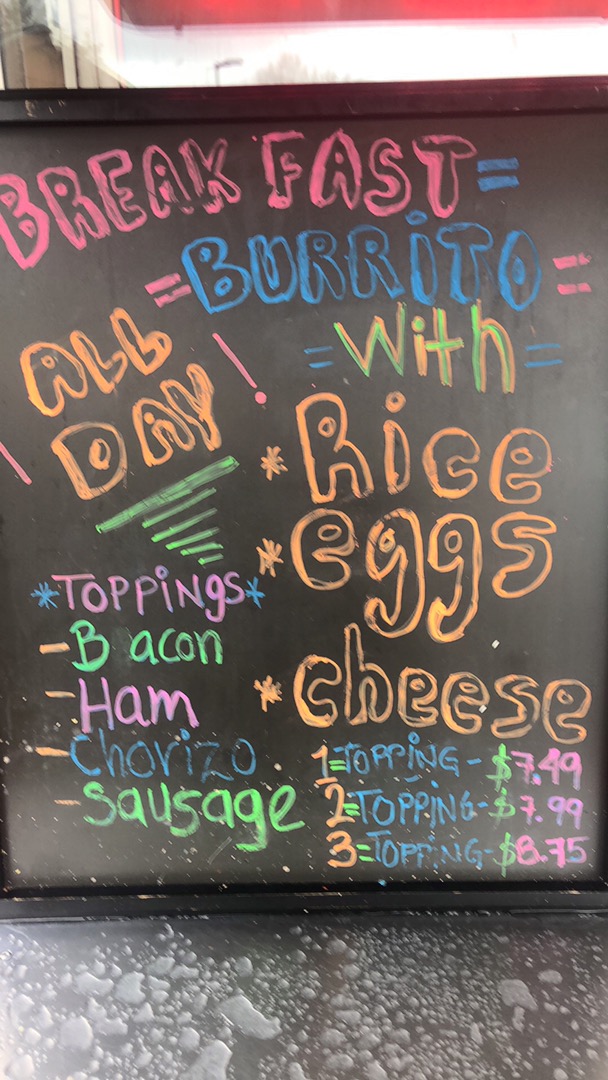 BREAK FAST=
=BURRiTO=
=With=
ALL
DAY !
*Rice
*eggs
*cheese
*TOPPiNgS*
-Bacon
-Ham
-Chorizo
-Sausage
1=TOPPING-$7.49
2=TOPPING-$7.99
3=TOPPING-$8.75